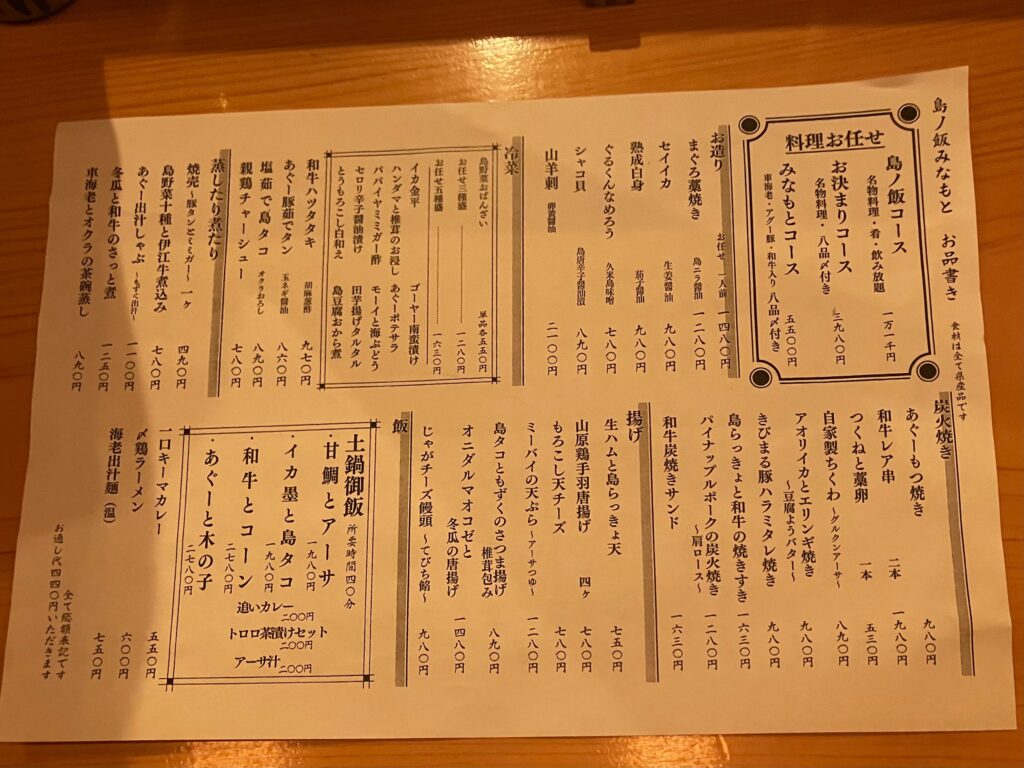 島ノ飯みなもと　お品書き
食材は全て県産品です
料理お任せ
島ノ飯コース
名物料理・肴・飲み放題
一万一千円
お決まりコース
名物料理・八品〆付き
三九八〇円
みなもとコース
車海老・アグー豚・和牛入り八品〆付き
五五〇〇円
お造り
お任せ　一人前　一四八〇円
まぐろ藁焼き　島ニラ醤油　一二八〇円
セイイカ　生姜醤油　九八〇円
熟成白身　茄子醤油　九八〇円
ぐるくんなめろう　久米島味噌　七八〇円
シャコ貝　島唐辛子醤油漬　八九〇円
山羊刺　卵黄醤油　二一〇〇円
冷菜
島野菜おばんざい　単品各五五〇円
お任せ三種盛　一二八〇円
お任せ五種盛　一六三〇円
イカ金平　ゴーヤー南蛮漬け
ハンダマと椎茸のお浸し　あぐーポテサラ
パパイヤミミガー酢　モーイと海ぶどう
セロリ辛子醤油漬け　田芋揚げタルタル
とうもろこし白和え　島豆腐おから煮
和牛ハツタタキ　胡麻葱酢　九七〇円
あぐー豚茹でタン　玉ネギ醤油　八六〇円
塩茹で島タコ　オクラおろし　八九〇円
親鶏チャーシュー　七八〇円
蒸したり煮たり
焼売～豚タンとミミガー～　一ヶ　四九〇円
島野菜十種と伊江牛煮込み　七八〇円
あぐー出汁しゃぶ　～もずく出汁～　一一〇〇円
冬瓜と和牛のさっと煮　一二五〇円
車海老とオクラの茶碗蒸し　八九〇円
炭火焼き
あぐーもつ焼き　九八〇円
和牛レア串　二本　一九八〇円
つくねと藁卵　一本　五三〇円
自家製ちくわ～グルクンアーサ～　八九〇円
アオリイカとエリンギ焼き
～豆腐ようバター～　九八〇円
きびまる豚ハラミタレ焼き　九八〇円
島らっきょと和牛の焼きすき　一六三〇円
パイナップルポークの炭火焼き
～肩ロース～　一二八〇円
和牛炭焼きサンド　一六三〇円
揚げ
生ハムと島らっきょ天　七五〇円
山原鶏手羽唐揚げ　四ヶ　九八〇円
もろこし天チーズ　七八〇円
ミーバイの天ぷら～アーサつゆ～　一二八〇円
島タコともずくのさつま揚げ
椎茸包み　八九〇円
オニダルマオコゼと
冬瓜の唐揚げ　一四八〇円
じゃがチーズ饅頭　～てびち餡～　九八〇円
飯
土鍋御飯　所要時間四〇分
・甘鯛とアーサ
一九八〇円
・イカ墨と島タコ
一九八〇円
・和牛とコーン
二七八〇円
・あぐーと木の子
二七八〇円
追いカレー
二〇〇円
トロロ茶漬けセット
二〇〇円
アーサ汁
二〇〇円
一口キーマカレー　五五〇円
〆鶏ラーメン　六〇〇円
海老出汁麺（温）　七五〇円
全て総額表記です
お通し代四四〇円いただきます